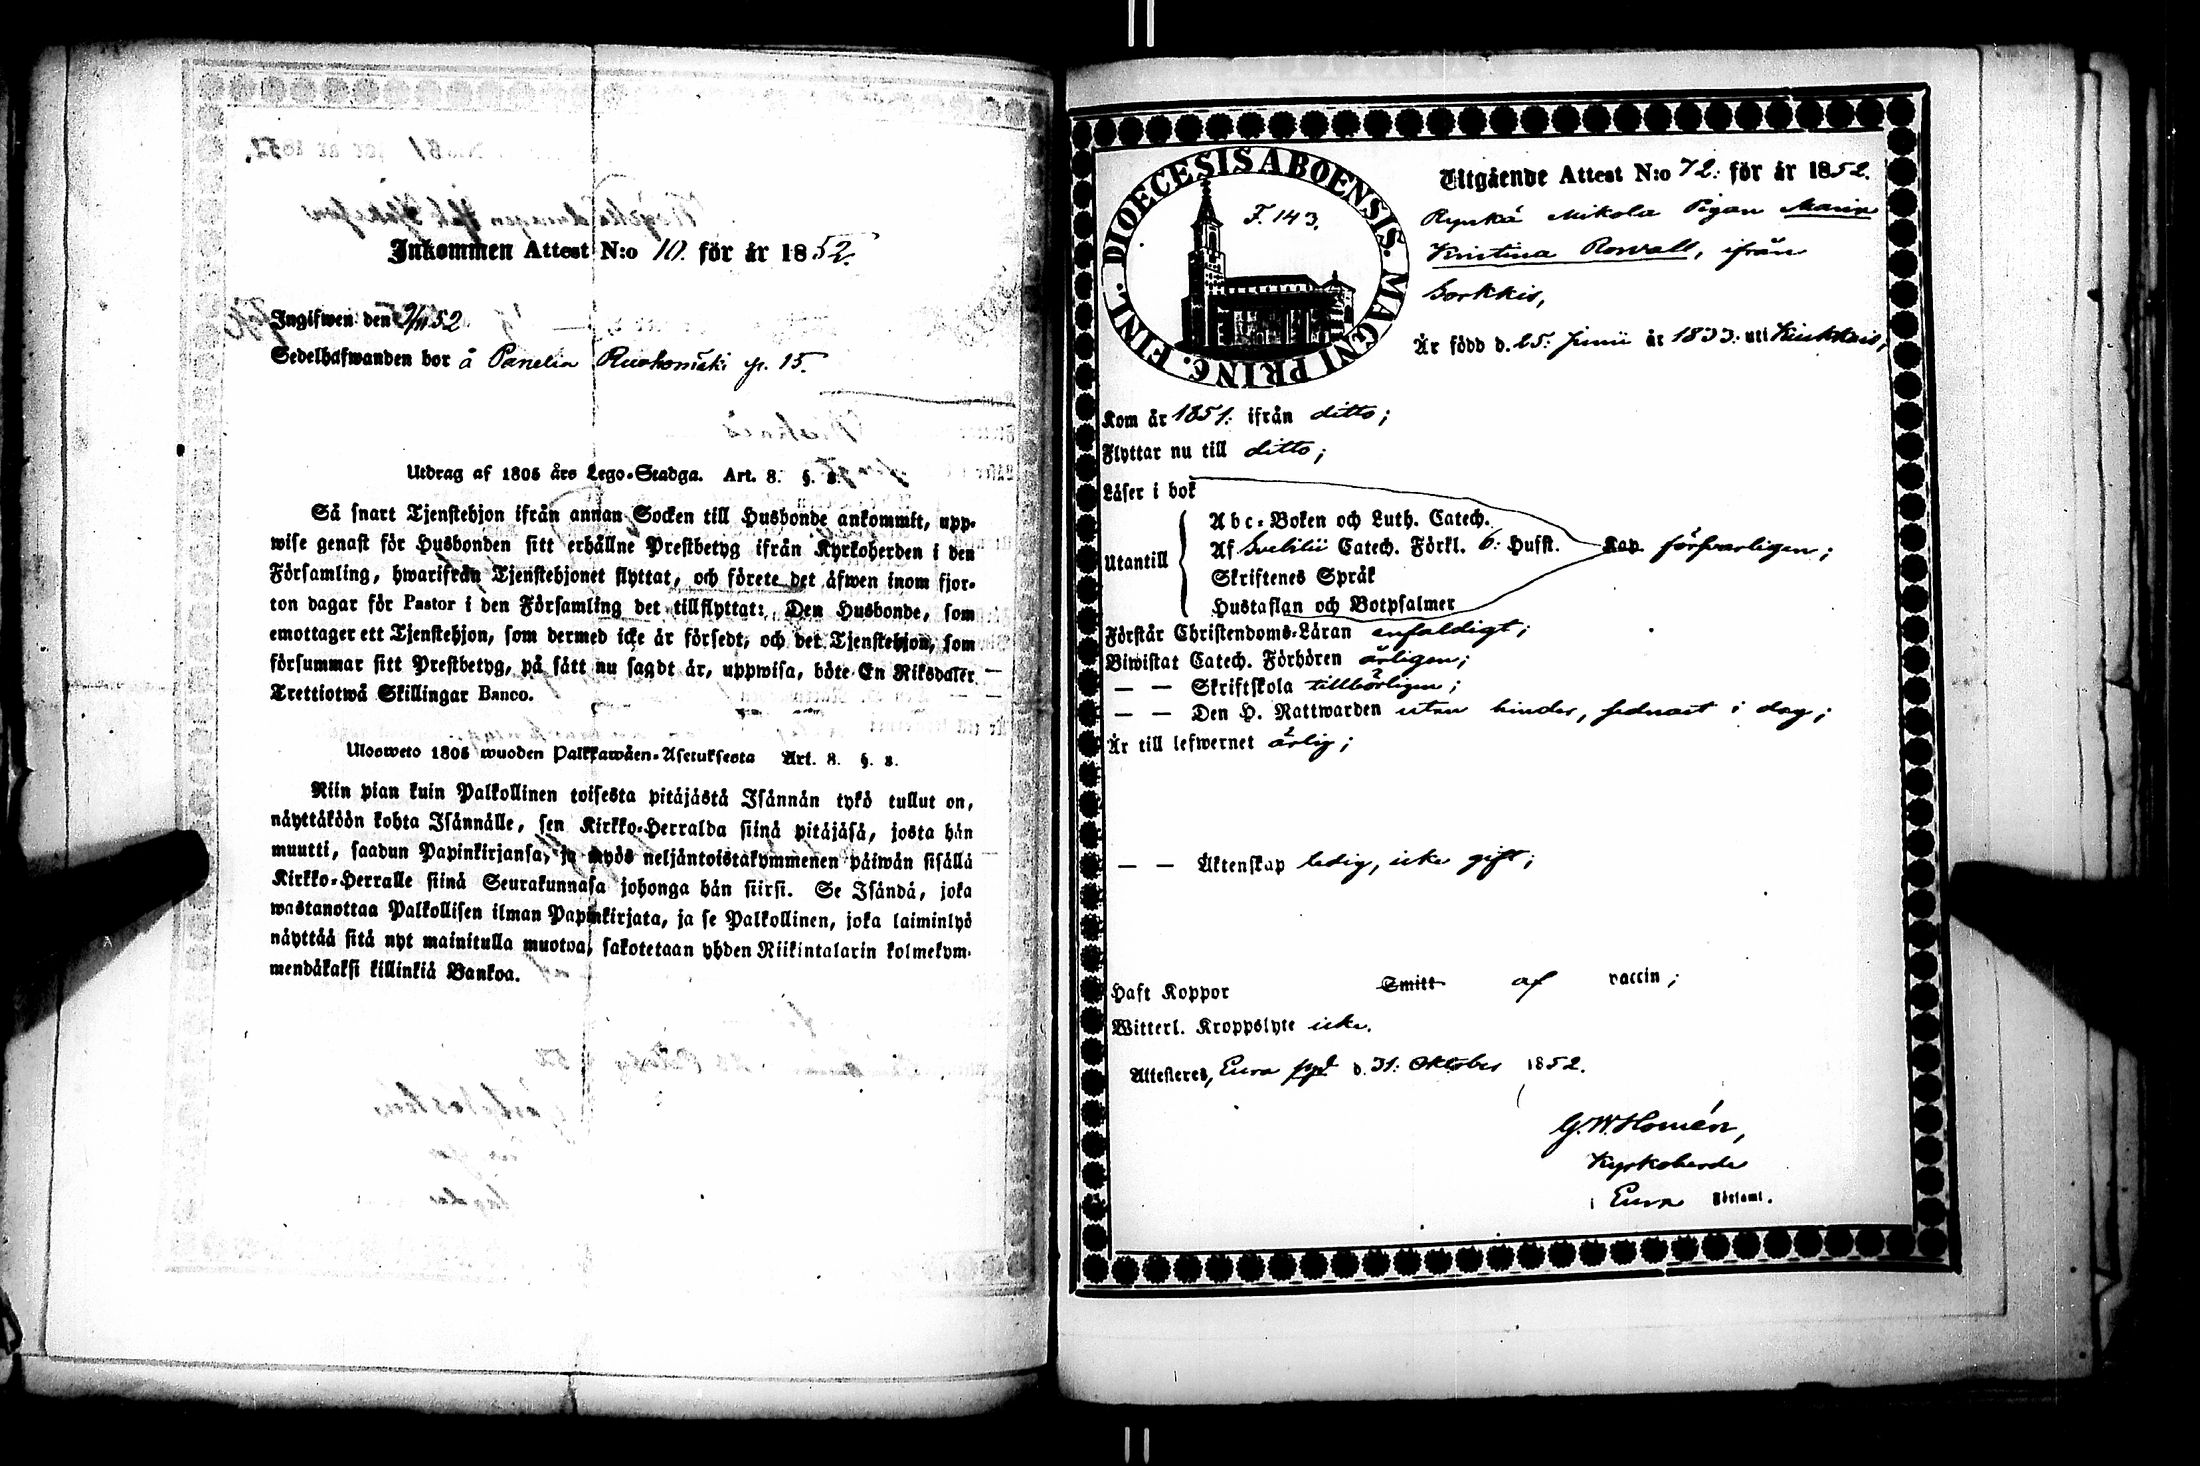 Inkommen Attest N:o 10. för år 1852.
Ingifwen den 9/11 52
Sedelhafwanden bor å Panelia Ruohomäki p. 15.
Utdrag af 1805 års Lego-Stadga. Art. 8. §. 8.
Så snart Tjenstehjon ifrån annan Socken till Husbonde ankommit, upp-
wise genast för Husbonden sitt erhållne Prestbetyg ifrån Kyrkoherden i den
Församling, hwarifrån Tjenstehjonet flyttat, och förete det äfwen inom fjor-
ton dagar för Pastor i den Församling det tillflyttat: Den Husbonde, som
emottager ett Tjenstehjon, som dermed icke är försedt, och det Tjenstehjon, som
försummar sitt Prestbetyg, på sätt nu sagdt är, uppwisa, böte En Riksdaler
Trettiotwå Skillingar Banco.
Ulosweto 1805 wuoden Palkkawäen-Asetuksesta Art. 8. §. 8.
Niin pian kuin Palkollinen toisesta pitäjästä Isännän tykö tullut on,
näyttäköön kohta Isännälle, sen Kirkko-Herralda siinä pitäjäsä, josta hän
muutti, saadun Papinkirjansa, ja myös neljäntoistakymmenen päiwän sisällä
Kirkko-Herralle siinä Seurakunnasa johonga hän siirsi. Se Isändä, joka
wastanottaa Palkollisen ilman Papinkirjata, ja se Palkollinen, joka laiminlyö
näyttää sitä nyt mainitulla muotoa, sakotetaan yhden Riikintalarin kolmekym-
mendäkaksi killinkiä Bankoa.
DIOECESIS ABOENSIS. MAGNI PRINC. FINL.
F. 143.
Utgående Attest N:o 72. för år 1852.
Mikola Pigan Maria
Kristina Rosvall, ifrån
Sorkkis,
Är född d. 25: Junii år 1833. uti Kiukkais,
Kom år 1851. ifrån ditto;
Flyttar nu till ditto;
Läser i bok
Abc-Boken och Luth. Catech.
Utantill Af Svebilii Catech. Förkl. 6: Hufst. Kap försvarligen;
Skriftenes Språk
Hustaflan och Botpsalmer
Förstår Christendoms-Läran enfaldigt;
Biwistat Catech. Förhören årligen;
— — Skriftskola tillbörligen;
— — Den H. Nattwarden utan hinder, sednast i dag;
Är till lefwernet ärlig;
— — Äktenskap ledig, icke gift;
Haft Koppor Smitt af vaccin;
Witterl. Kroppslyte icke.
Attesteres, Eura d. 31: Oktober 1852.
G. W. Homén,
Kyrkoherde
i Eura Församl.